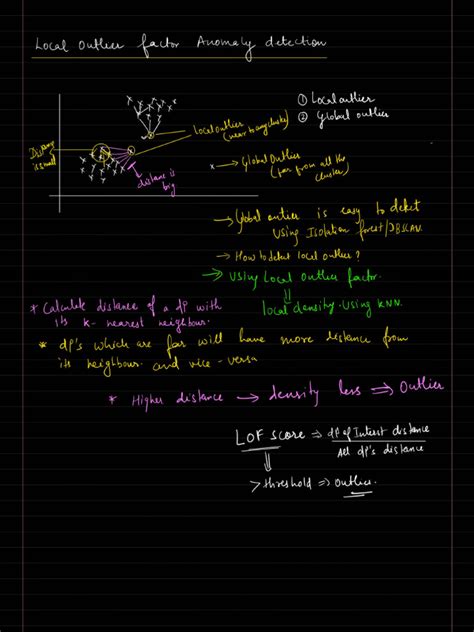 Local Outlier factor Anomaly detection
① Local outlier
② Global outlier
Local outlier
(near to any cluster)
Distance
is small
x → Global Outlier
(far from all the
cluster)
distance is
big
→ Global outlier is easy to detect
using Isolation forest/DBSCAN.
→ How to detect local outlier?
→ Using Local Outlier factor.
⇓
local density. Using KNN.
* Calculate distance of a dp with
its k- nearest neighbour.
* dp's which are far will have more distance from
its neighbour. and vice-versa
* Higher distance → density less ⇒ Outlier
LOF score ⇒ dp of Interest distance
All dp's distance
⇓
> threshold ⇒ outlier.